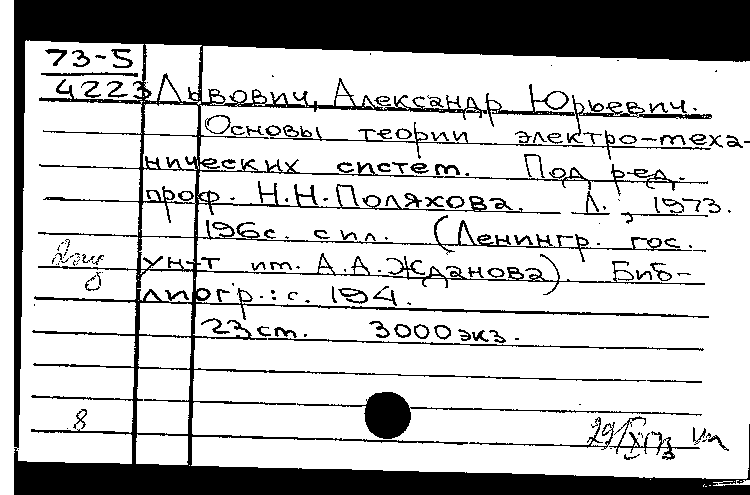 73-5
4223 Львович, Александр Юрьевич.
Основы теории электро-меха-
нических систем. Под ред.
проф. Н.Н.Поляхова. Л., 1973.
196с. с ил. (Ленингр. гос.
ун-т им. А.А.Жданова). Биб-
лиогр.: с. 194.
23см. 3000экз.
8